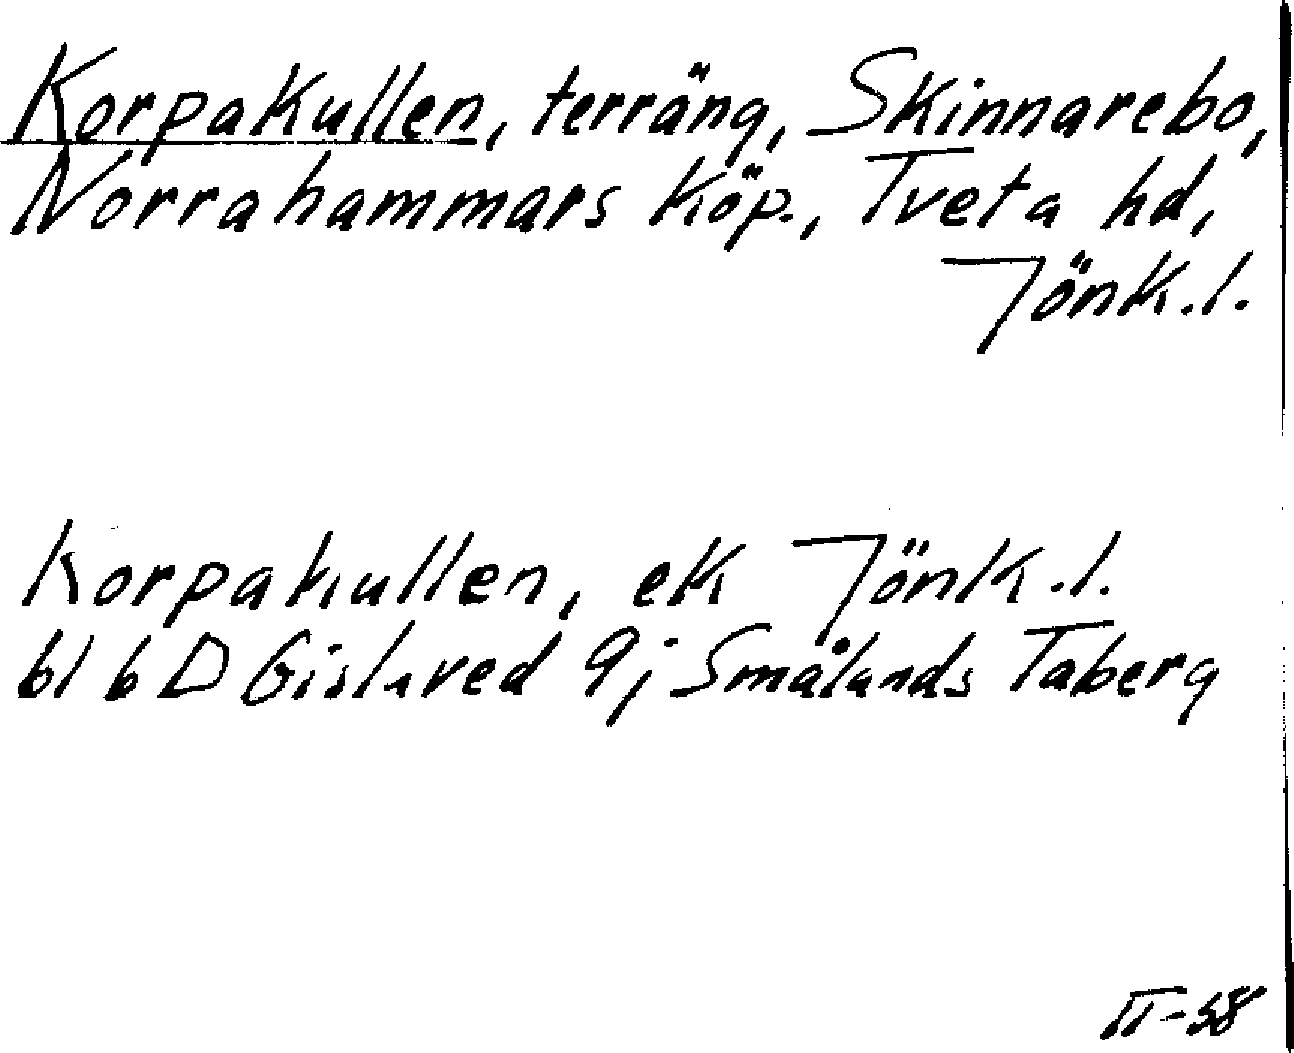 Korpakullen, terräng, Skinnarebo,
Norrahammars köp., Tveta hd,
Jönk.l.
Korpakullen, ek Jönk.l.
bl 6 D Gislaved 9j Smålands Taberg
II-58